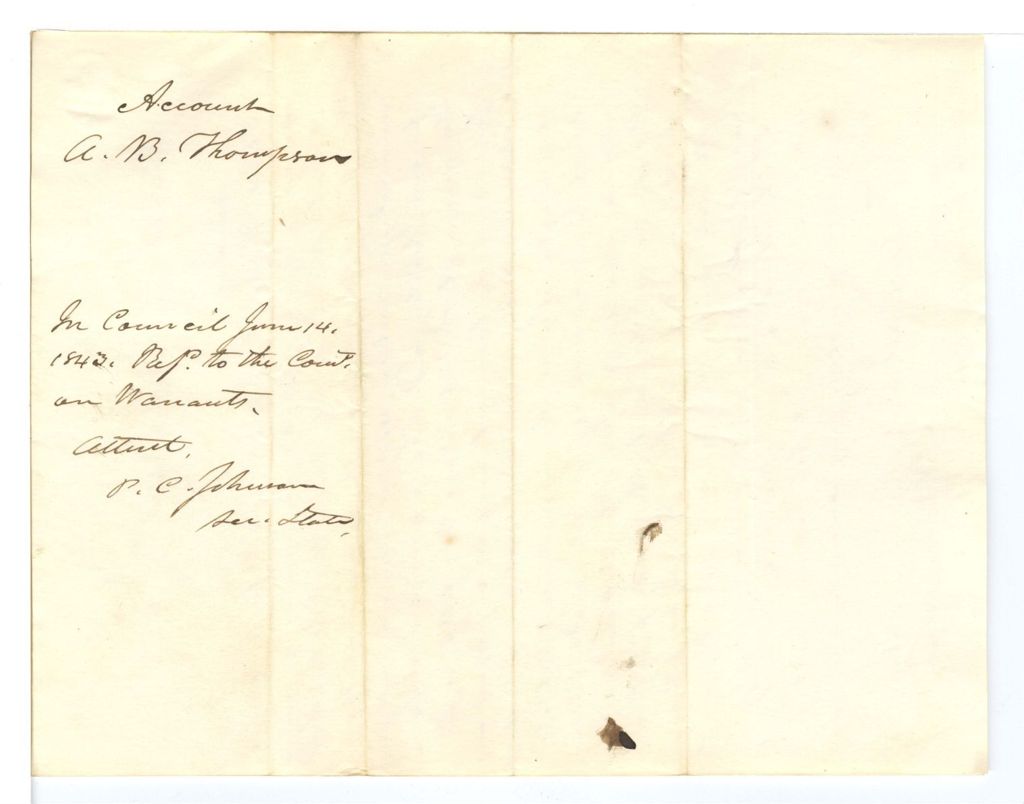 Account
A. B. Thompson
In Council June 14.
1843. Ref. to the Com.
on Warrants.
Attest,
P. C. Johnson
Sec. State,